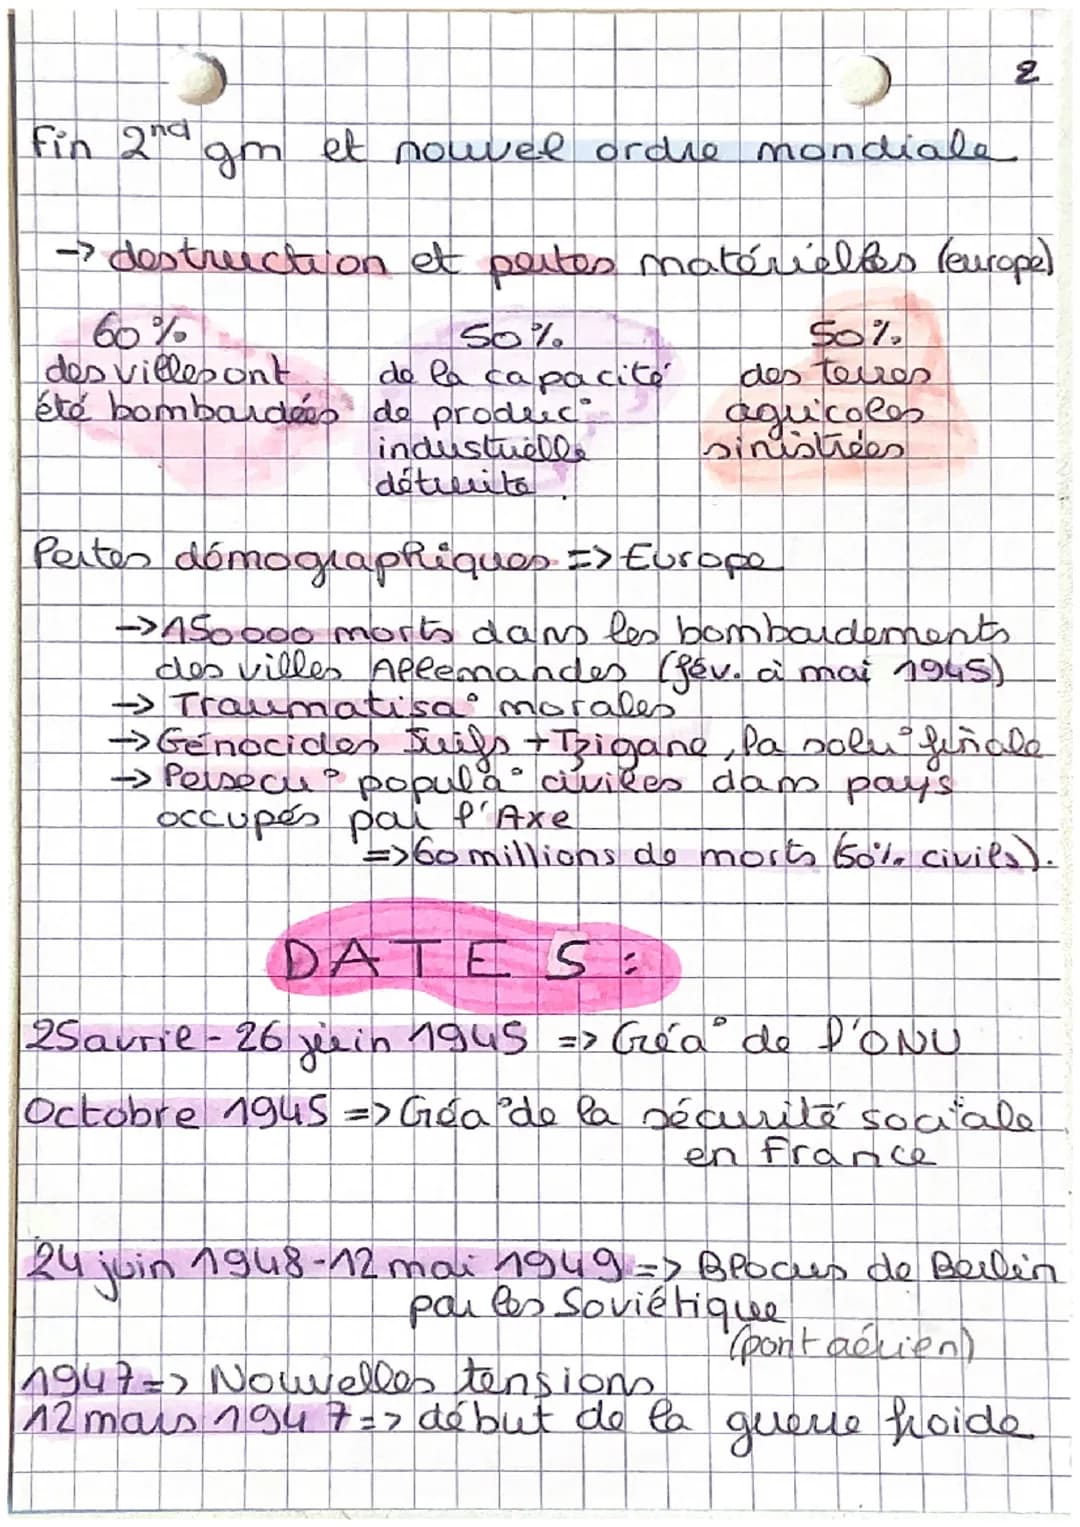 2
Fin 2nd gm et nouvel ordre mondiale
-> destruction et pertes matérielles (europe)
60%
des villes ont
été bombardées
50%
de la capacité
de produc°
industrielle
détruite.
50%
des terres
agricoles
sinistrées
Pertes démographiques => Europe
-> 150 000 morts dans les bombardements
des villes Allemandes (fév. à mai 1945)
-> Traumatisa° morales
-> Génocides Juifs + Tzigane, la solu° finale
-> Persecu° popula° civiles dans pays
occupés par l'Axe
=> 60 millions de morts (50% civils).
DATES :
25 avril - 26 juin 1945 => Créa° de l'ONU
Octobre 1945 => Créa° de la sécurité sociale
en France
24 juin 1948 - 12 mai 1949 => Blocus de Berlin
par les Soviétique
(pont aérien)
1947 => Nouvelles tensions
12 mars 1947 => début de la guerre froide